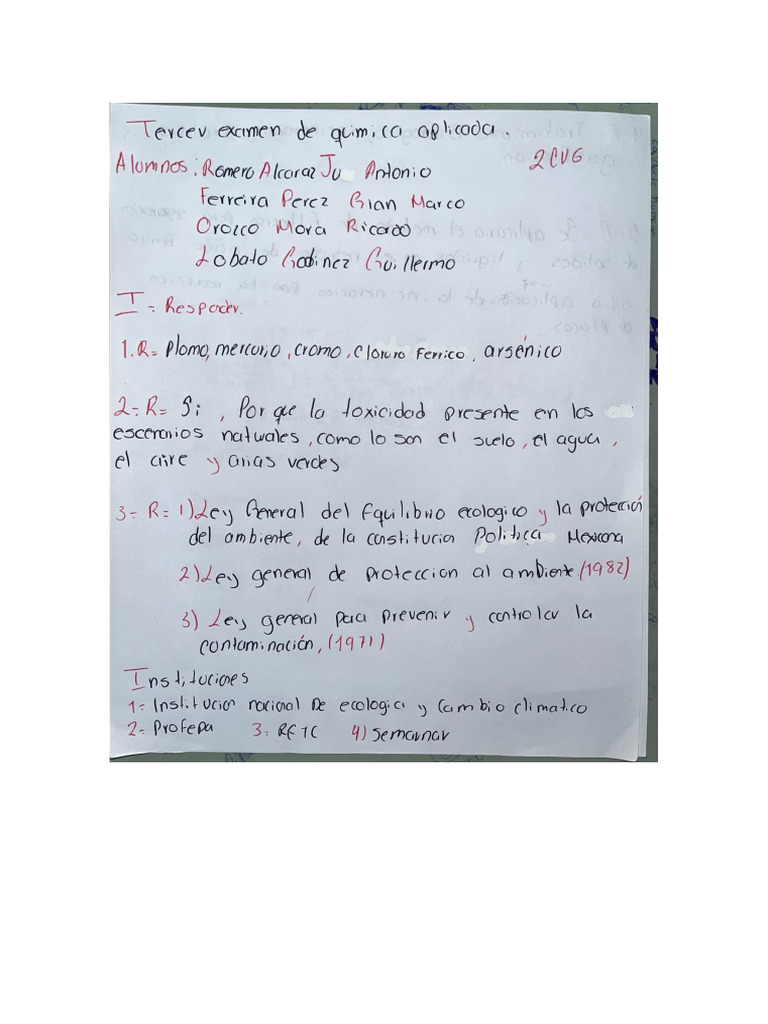 Tercer examen de quimica aplicada.
Alumnos: Romero Alcaraz Ju Antonio 2CV6
Ferreira Perez Gian Marco
Orozco Mora Ricardo
Lobato Godinez Guillermo
I= Responder.
1.R= Plomo, mercurio, cromo, Cloruro Ferrico, arsénico
2=R= Si, Por que la toxicidad presente en los
escenarios naturales, como lo son el suelo, el agua,
el aire y arias verdes
3=R=1) Ley General del Equilibrio ecologico y la protección
del ambiente, de la constitucion Politica Mexicana
2) Ley general de proteccion al ambiente (1982)
3) Ley general para prevenir y controlar la
contaminación, (1971)
Instituciones
1= Institucion nacional De ecologica y Cambio climatico
2= Profepa 3= RETC 4) Semarnar